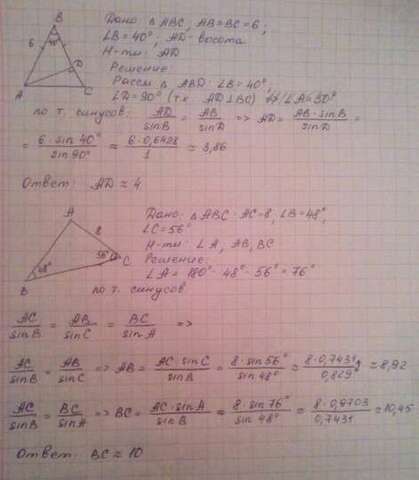 B
6
40°
A
D
C
Дано: △ ABC, AB=BC=6;
∠B=40°; AD-высота
Н-ти: AD
Решение
Рассм △ ABD: ∠B=40°,
∠D=90° (т.к AD⊥BC) ∠A=50°
по т. синусов: AD/sinB = AB/sinD => AD= AB·sinB/sinD =
= 6·sin40°/sin90° ≈ 6·0,6428/1 ≈ 3,86
Ответ: AD≈4
A
8
56°
C
48°
B
Дано: △ ABC · AC=8, ∠B=48°,
∠C=56°
Н-ти: ∠A, AB, BC
Решение:
∠A = 180°-48°-56°=76°
по т. синусов
AC/sinB = AB/sinC = BC/sinA =>
AC/sinB = AB/sinC => AB= AC·sinC/sinB = 8·sin56°/sin48° ≈ 8·0,7431/0,829 ≈ 8,92
AC/sinB = BC/sinA => BC= AC·sinA/sinB = 8·sin76°/sin48° ≈ 8·0,9703/0,7431 ≈ 10,45
Ответ: BC≈10